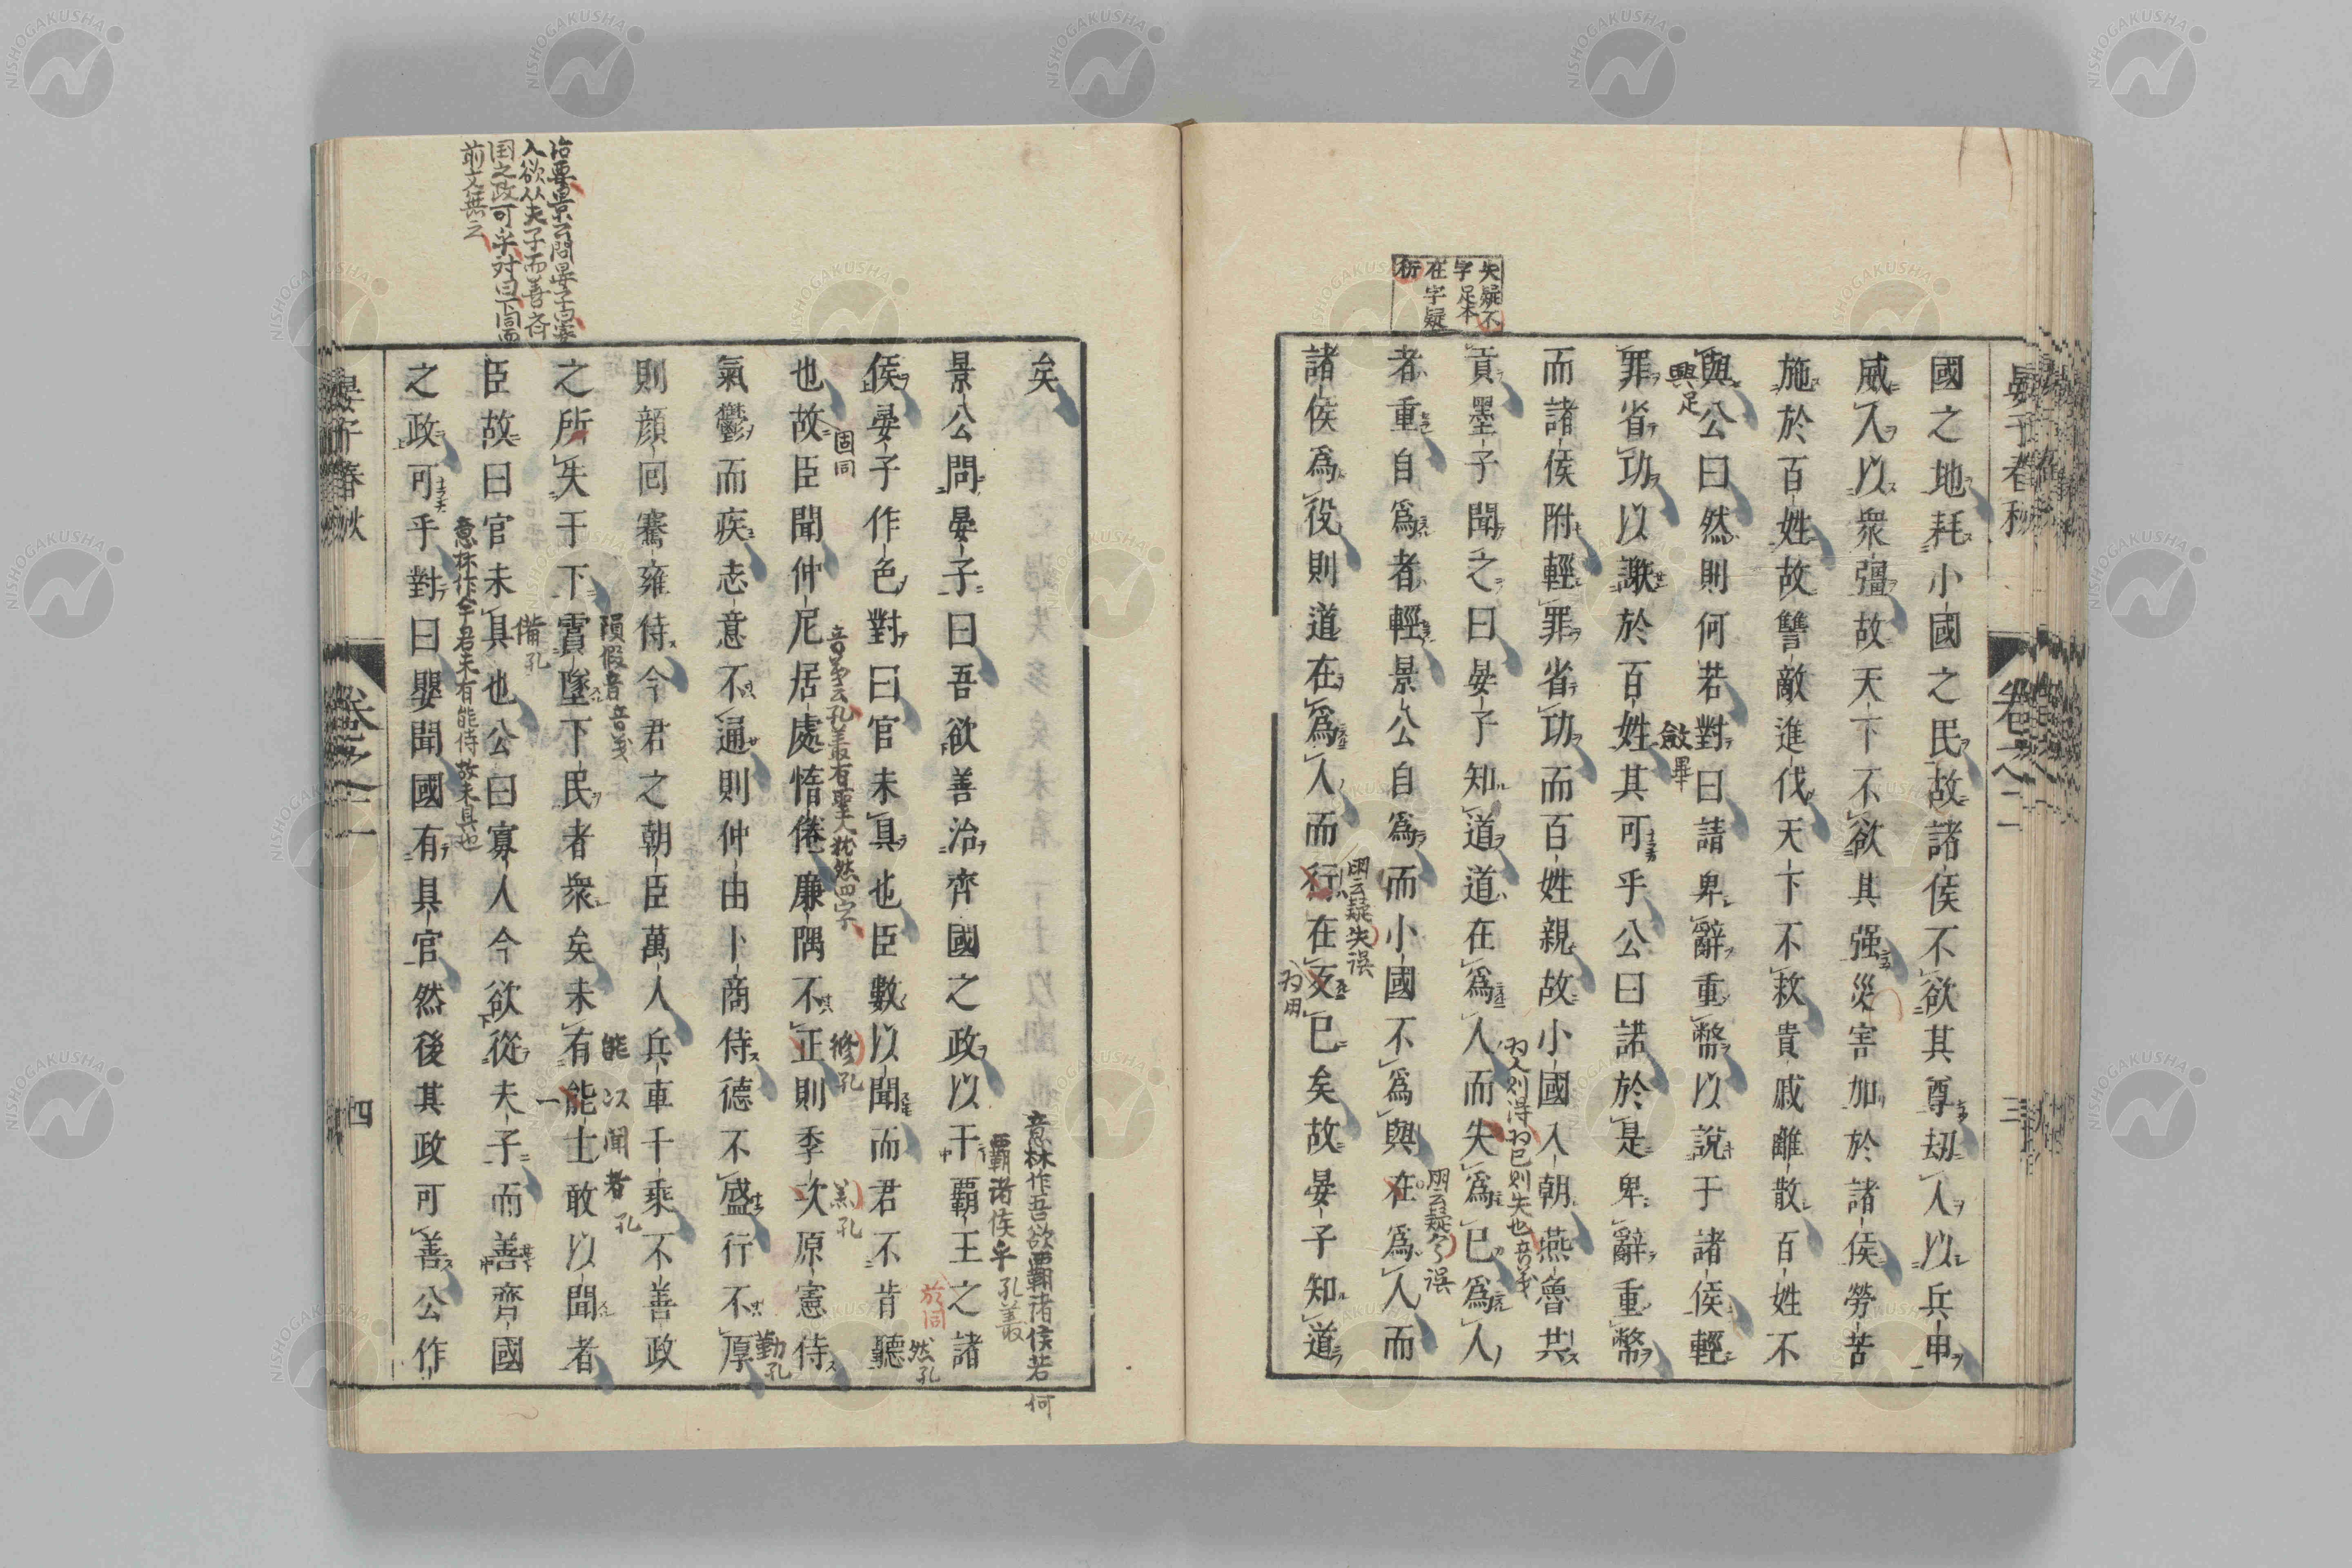 晏子春秋
卷之二
三
國之地耗小國之民故諸侯不欲其尊劫人以兵甲
威人以衆彊故天下不欲其强災害加於諸侯勞苦
施於百姓故讐敵進伐天下不救貴戚離散百姓不
與公曰然則何若對曰請卑辭重幣以說于諸侯輕
興足
斂畢
罪省功以謝於百姓其可乎公曰諾於是卑辭重幣
而諸侯附輕罪省功而百姓親故小國入朝燕魯共
貢墨子聞之曰晏子知道道在爲人而失爲己爲人
为人則得为己則失也音义
者重自爲者輕景公自爲而小國不爲與在爲人而
諸侯爲役則道在爲人而行在反己矣故晏子知道
失疑不
字足本
在字疑
衍
矣
意林作吾欲覇諸侯若何
景公問晏子曰吾欲善治齊國之政以干覇王之諸
覇诸侯乎 孔叢
侯晏子作色對曰官未具也臣數以聞而君不肯聽
於同
然孔
也故臣聞仲尼居處惰倦廉隅不正則季次原憲侍
固同
修孔
氣鬱而疾志意不通則仲由卜商侍德不盛行不厚
勤孔
則顔回騫雍侍今君之朝臣萬人兵車千乘不善政
之所失于下霣墜下民者衆矣未有能士敢以聞者
隕假音音义
能以聞者孔
臣故曰官未具也公曰寡人今欲從夫子而善齊國
備孔
意林作今君未有能侍故未具也
之政可乎對曰嬰聞國有具官然後其政可善公作
治要景公問晏子曰寡
人欲从夫子而善齐
国之政可乎对曰下同而
前文無之
晏子春秋
卷之二
四
NISHOGAKUSHA